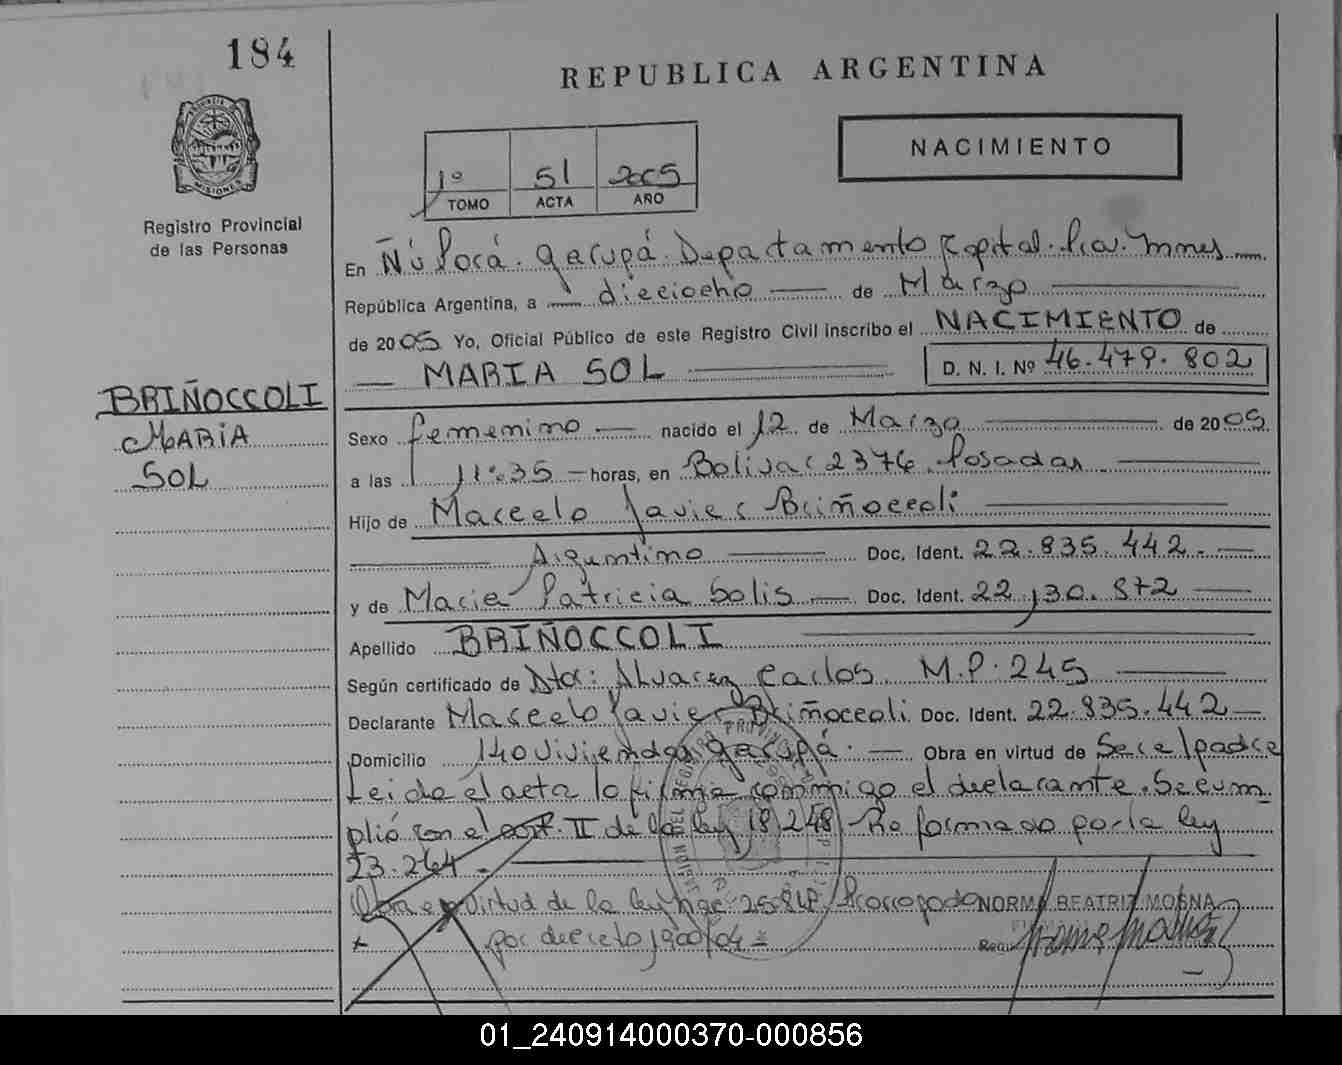 184
REPUBLICA ARGENTINA
NACIMIENTO
1º 51 2005
TOMO ACTA AÑO
MISIONES
Registro Provincial
de las Personas
En Ñú Porá. Garupá. Departamento Capital. Pcia. Mnes
República Argentina, a dieciocho de Marzo
de 2005 Yo, Oficial Público de este Registro Civil inscribo el NACIMIENTO de
MARIA SOL D. N. I. Nº 46.479.802
BRIÑOCCOLI
MARIA
SOL
Sexo femenino nacido el 12 de Marzo de 2005
a las 11:35 horas, en Bolivar 2376. Posadas
Hijo de Marcelo Javier Briñoccoli
Argentino Doc. Ident. 22.835.442.
y de Maria Patricia Solis Doc. Ident. 22,130.872
Apellido BRIÑOCCOLI
Según certificado de Dtor: Alvarez Carlos M.P. 245
Declarante Marcelo Javier Briñoccoli Doc. Ident. 22.835.442
Domicilio 140 viviendas Garupá. Obra en virtud de Ser el padre
Leida el acta la firma conmigo el declarante. Se cum
plió con el art. II de la ley 18.248 Reformado por la ley
23.264
Obra en virtud de la ley Nac 25.819 Prorrogada NORMA BEATRIZ MOSNA
por decreto 1900/04
01_240914000370-000856